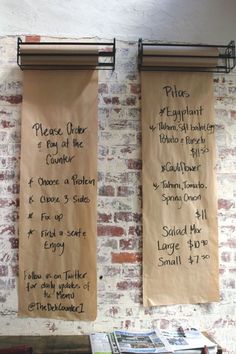 Please Order
& Pay at the
Counter
* Choose a Protein
* Choose 3 Sides
* Fix up
* Find a seat &
Enjoy
Follow us on Twitter
for daily updates of
the Menu
@TheDeliCounter1
Pitas
* Eggplant
w/ Tahini, Soft boiled Egg,
Potato & Parsely
$11.50
* Cauliflower
w/ Tahini, Tomato,
Spring Onion
$11
Salad Mix
Large $10.90
Small $7.50